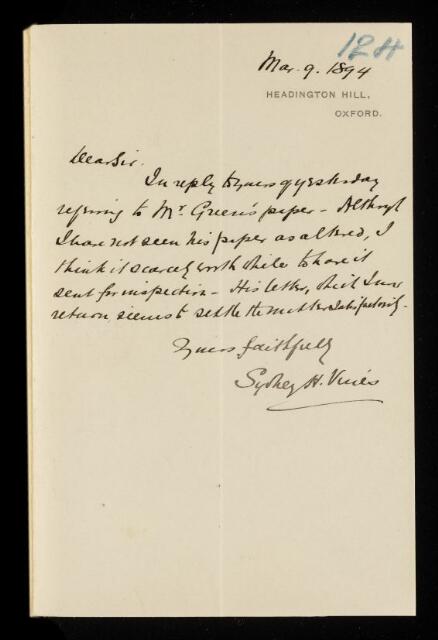 124
Mar. 9. 1894
HEADINGTON HILL,
OXFORD.
Dear Sir.
In reply to yours of yesterday
referring to Mr Green's paper - Although
I have not seen his paper as altered, I
think it scarcely worth while to have it
sent for inspection - His letter, which I now
return seems to settle the matter satisfactorily.
Yours faithfully
Sydney H. Vines